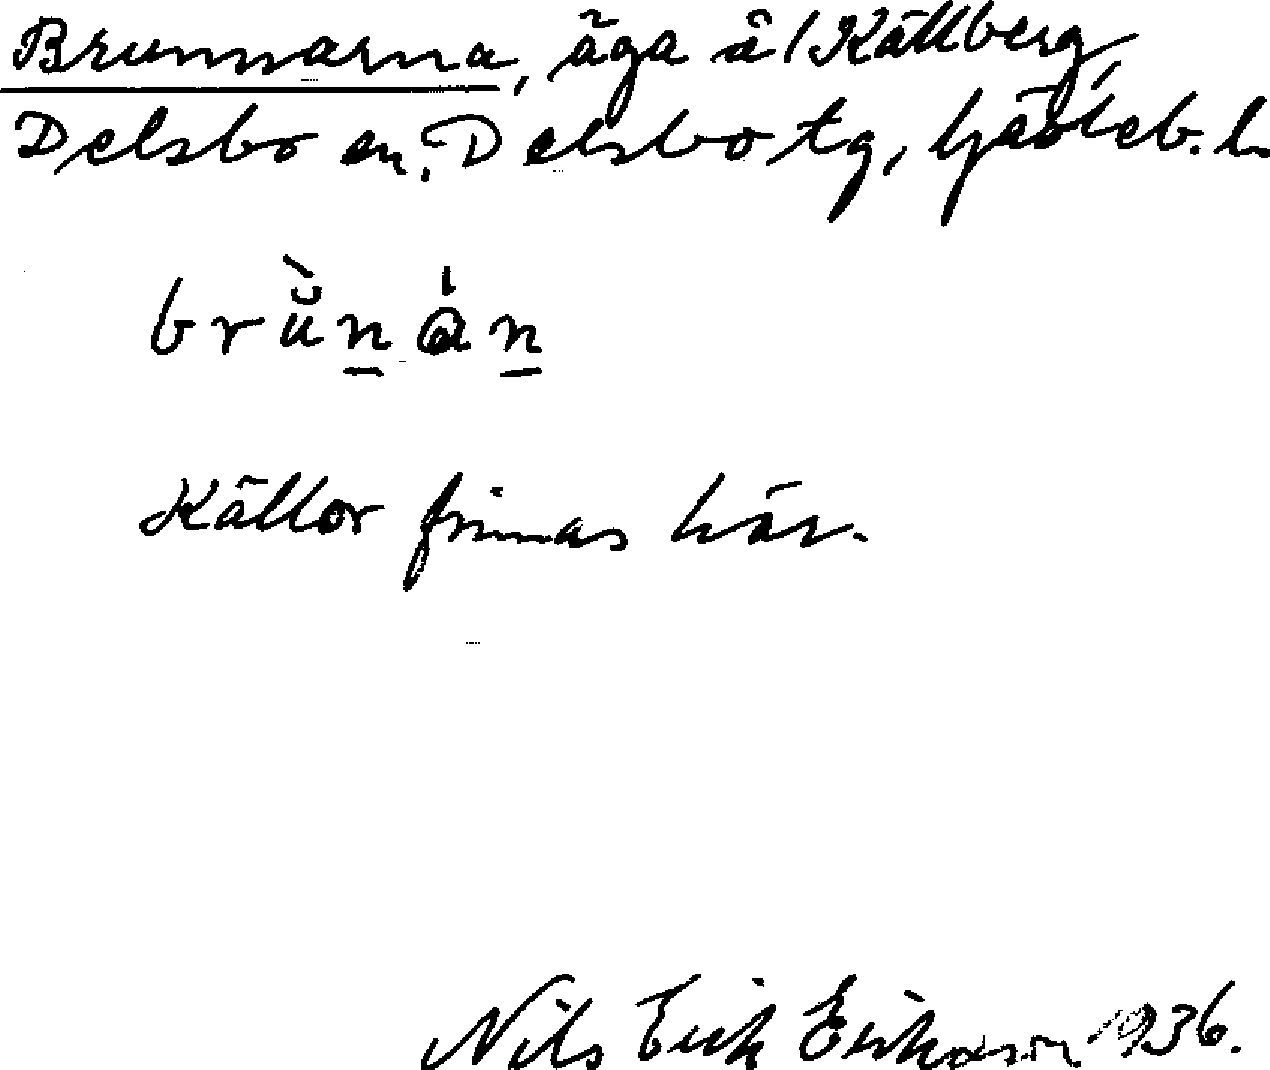 Brunnarna, äga å 1 Källberg,
Delsbo sn, Delsbo tg, Gävleb. l.
brŭ̀nán
Källor finnas här.
Nils Erik Eriksson 1936.